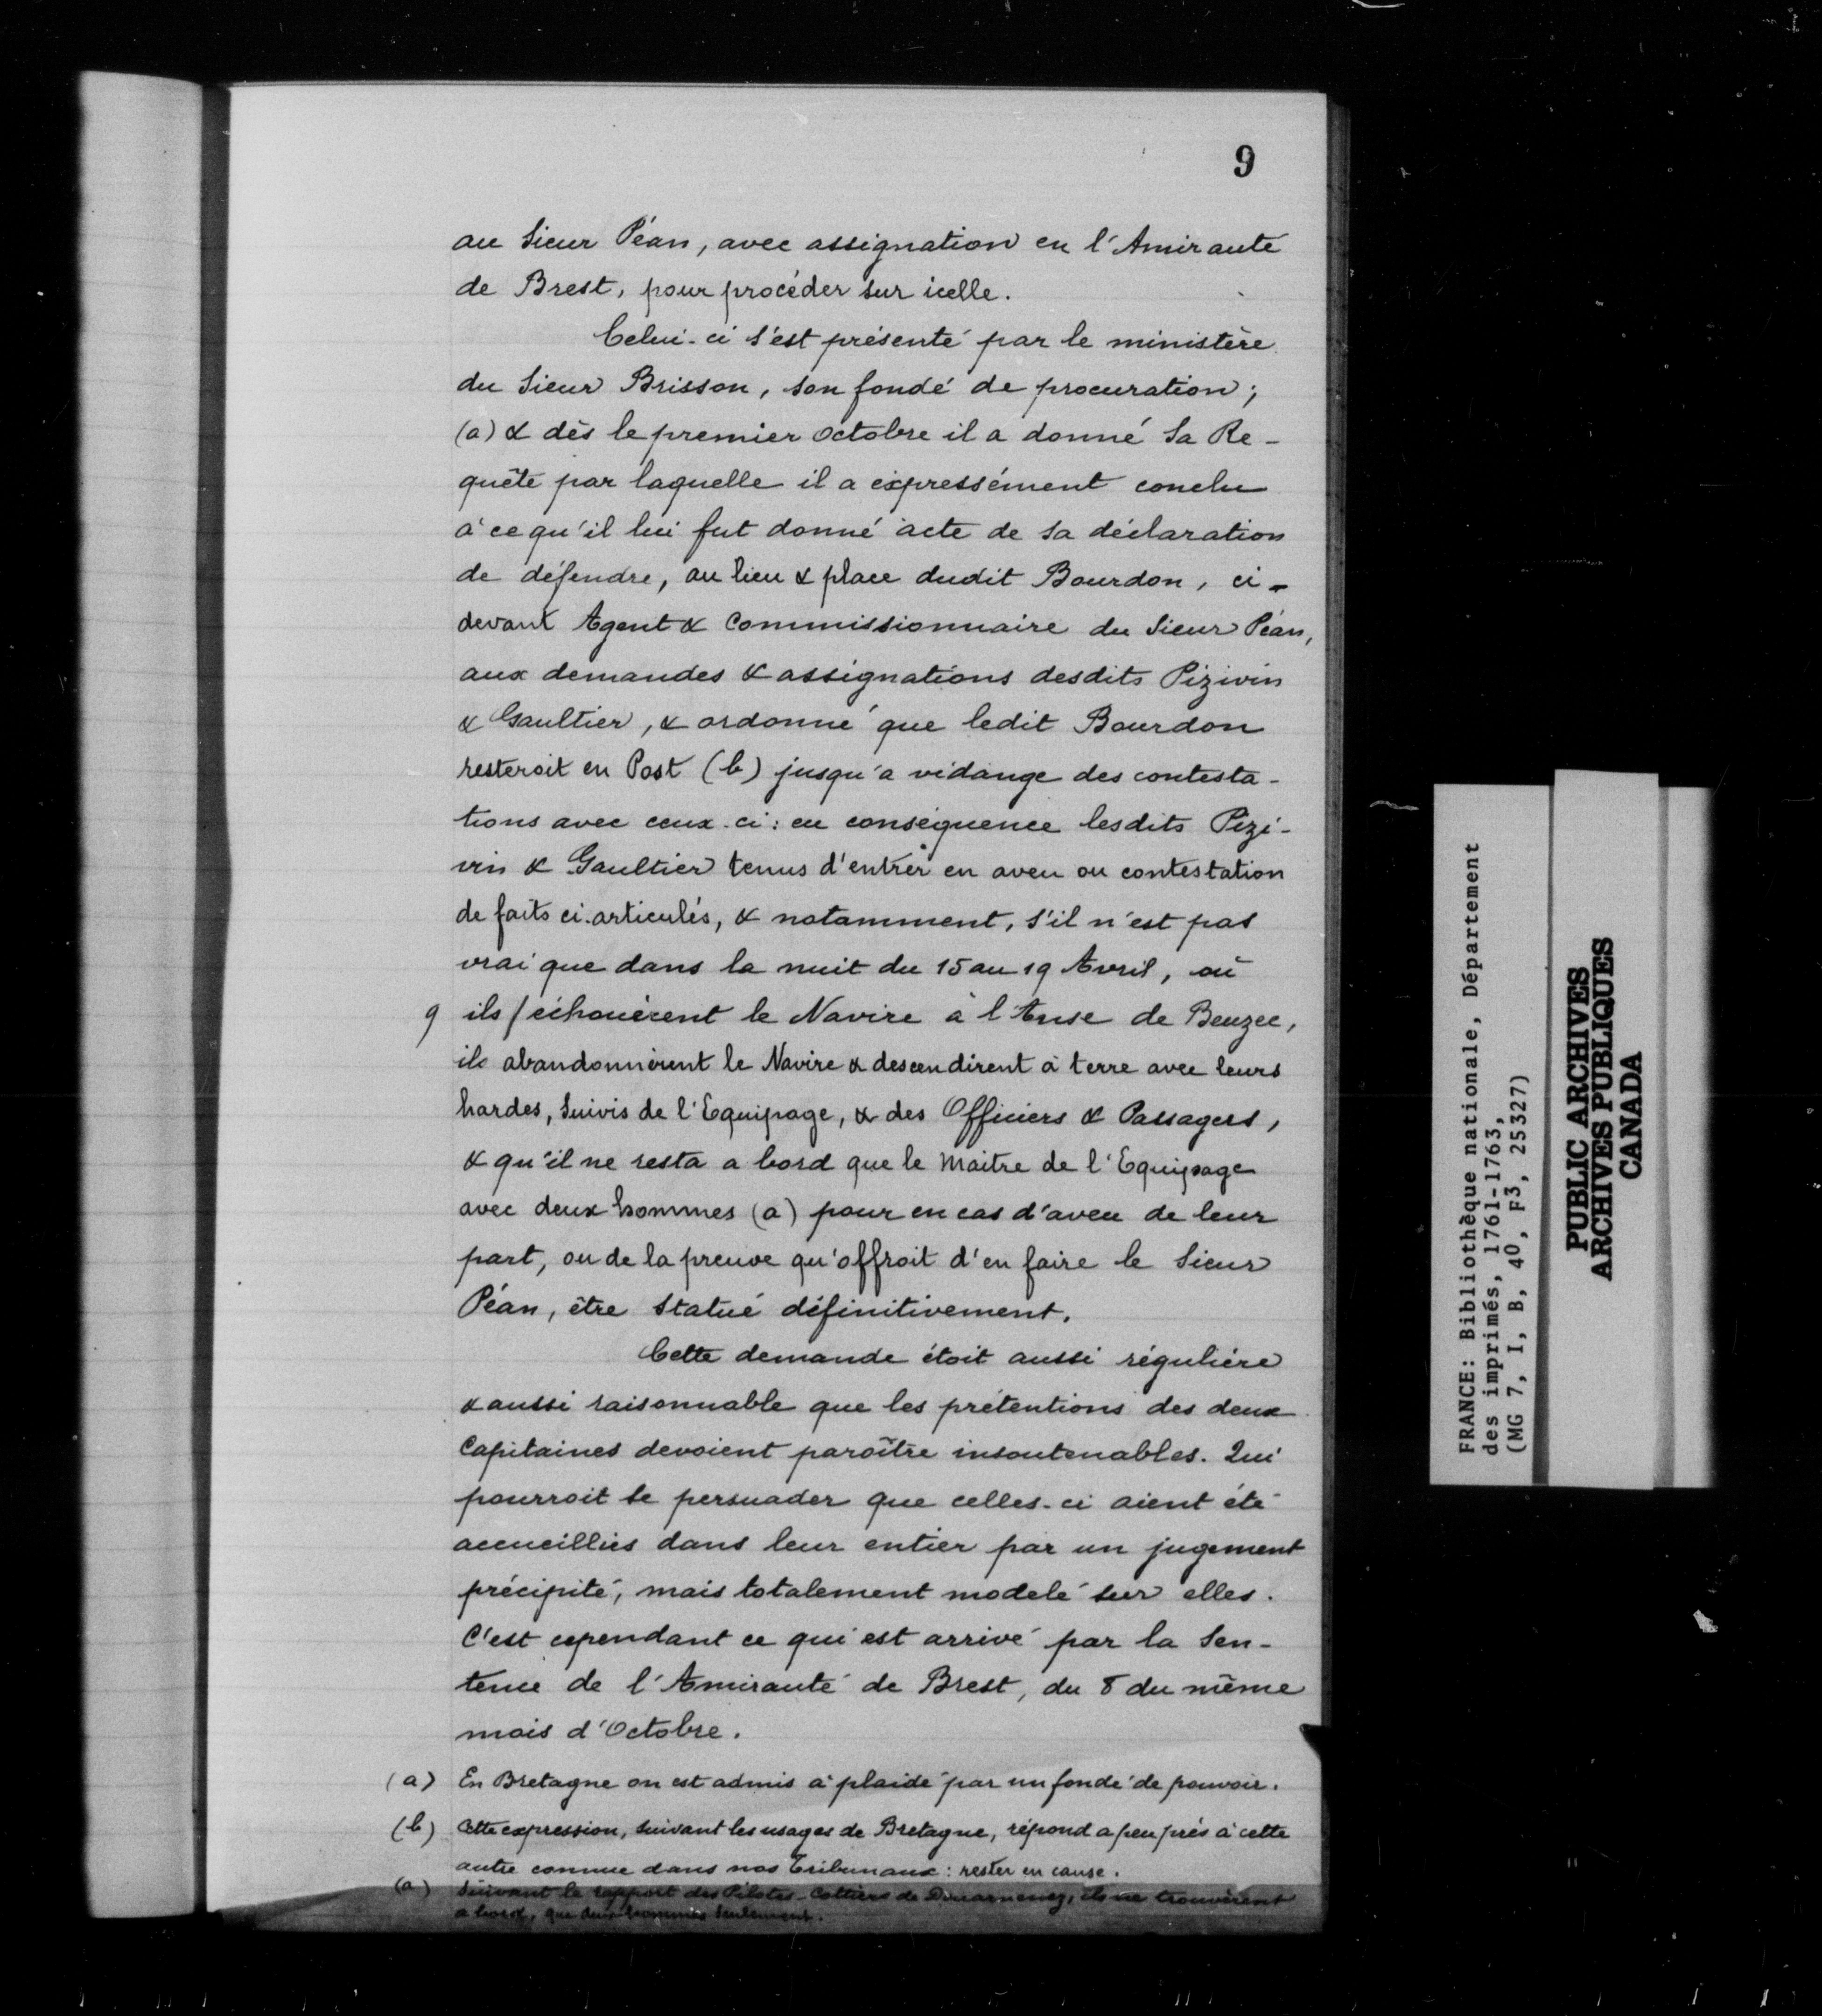 9
au Sieur Péan, avec assignation en l'Amirauté
de Brest, pour procéder sur icelle.
Celui-ci s'est présenté par le ministère
du Sieur Brisson, son fondé de procuration;
(a) & dès le premier octobre il a donné sa Re-
quête par laquelle il a expressément conclu
à ce qu'il lui fut donné acte de sa déclaration
de défendre, au lieu & place dudit Bourdon, ci-
devant Agent & Commissionnaire du Sieur Péan,
aux demandes & assignations desdits Pizivin
& Gaultier, & ordonné que ledit Bourdon
resteroit en Post (b) jusqu'a vidange des contesta-
tions avec ceux-ci: en conséquence lesdits Pizi-
vin & Gaultier tenus d'entrer en aveu ou contestation
de faits ci-articulés, & notamment, s'il n'est pas
vrai que dans la nuit du 15 au 19 Avril, où
9 ils / échouèrent le Navire à l'Anse de Beuzec,
ils abandonnèrent le Navire & descendirent à terre avec leurs
hardes, suivis de l'Equipage, & des Officiers & Passagers,
& qu'il ne resta a bord que le Maitre de l'Equipage
avec deux hommes (a) pour en cas d'aveu de leur
part, ou de la preuve qu'offroit d'en faire le Sieur
Péan, être statué définitivement.
Cette demande étoit aussi régulière
& aussi raisonnable que les prétentions des deux
Capitaines devoient paroître insoutenables. Qui
pourroit se persuader que celles-ci aient été
accueillies dans leur entier par un jugement
précipité, mais totalement modelé sur elles.
C'est cependant ce qui est arrivé par la Sen-
tence de l'Amirauté de Brest, du 8 du même
mois d'Octobre.
(a) En Bretagne on est admis à plaidé par un fondé de pouvoir.
(b) Cette expression, suivant les usages de Bretagne, répond a peu près à cette
autre connue dans nos Tribunaux: rester en cause.
(a) Suivant le rapport des Pilotes-Cottiers de Douarnenez, ils ne trouvèrent
a bord, que deux hommes seulement.
FRANCE: Bibliothèque nationale, Département
des imprimés, 1761-1763,
(MG 7, I, B, 40, F3, 25327)
PUBLIC ARCHIVES
ARCHIVES PUBLIQUES
CANADA